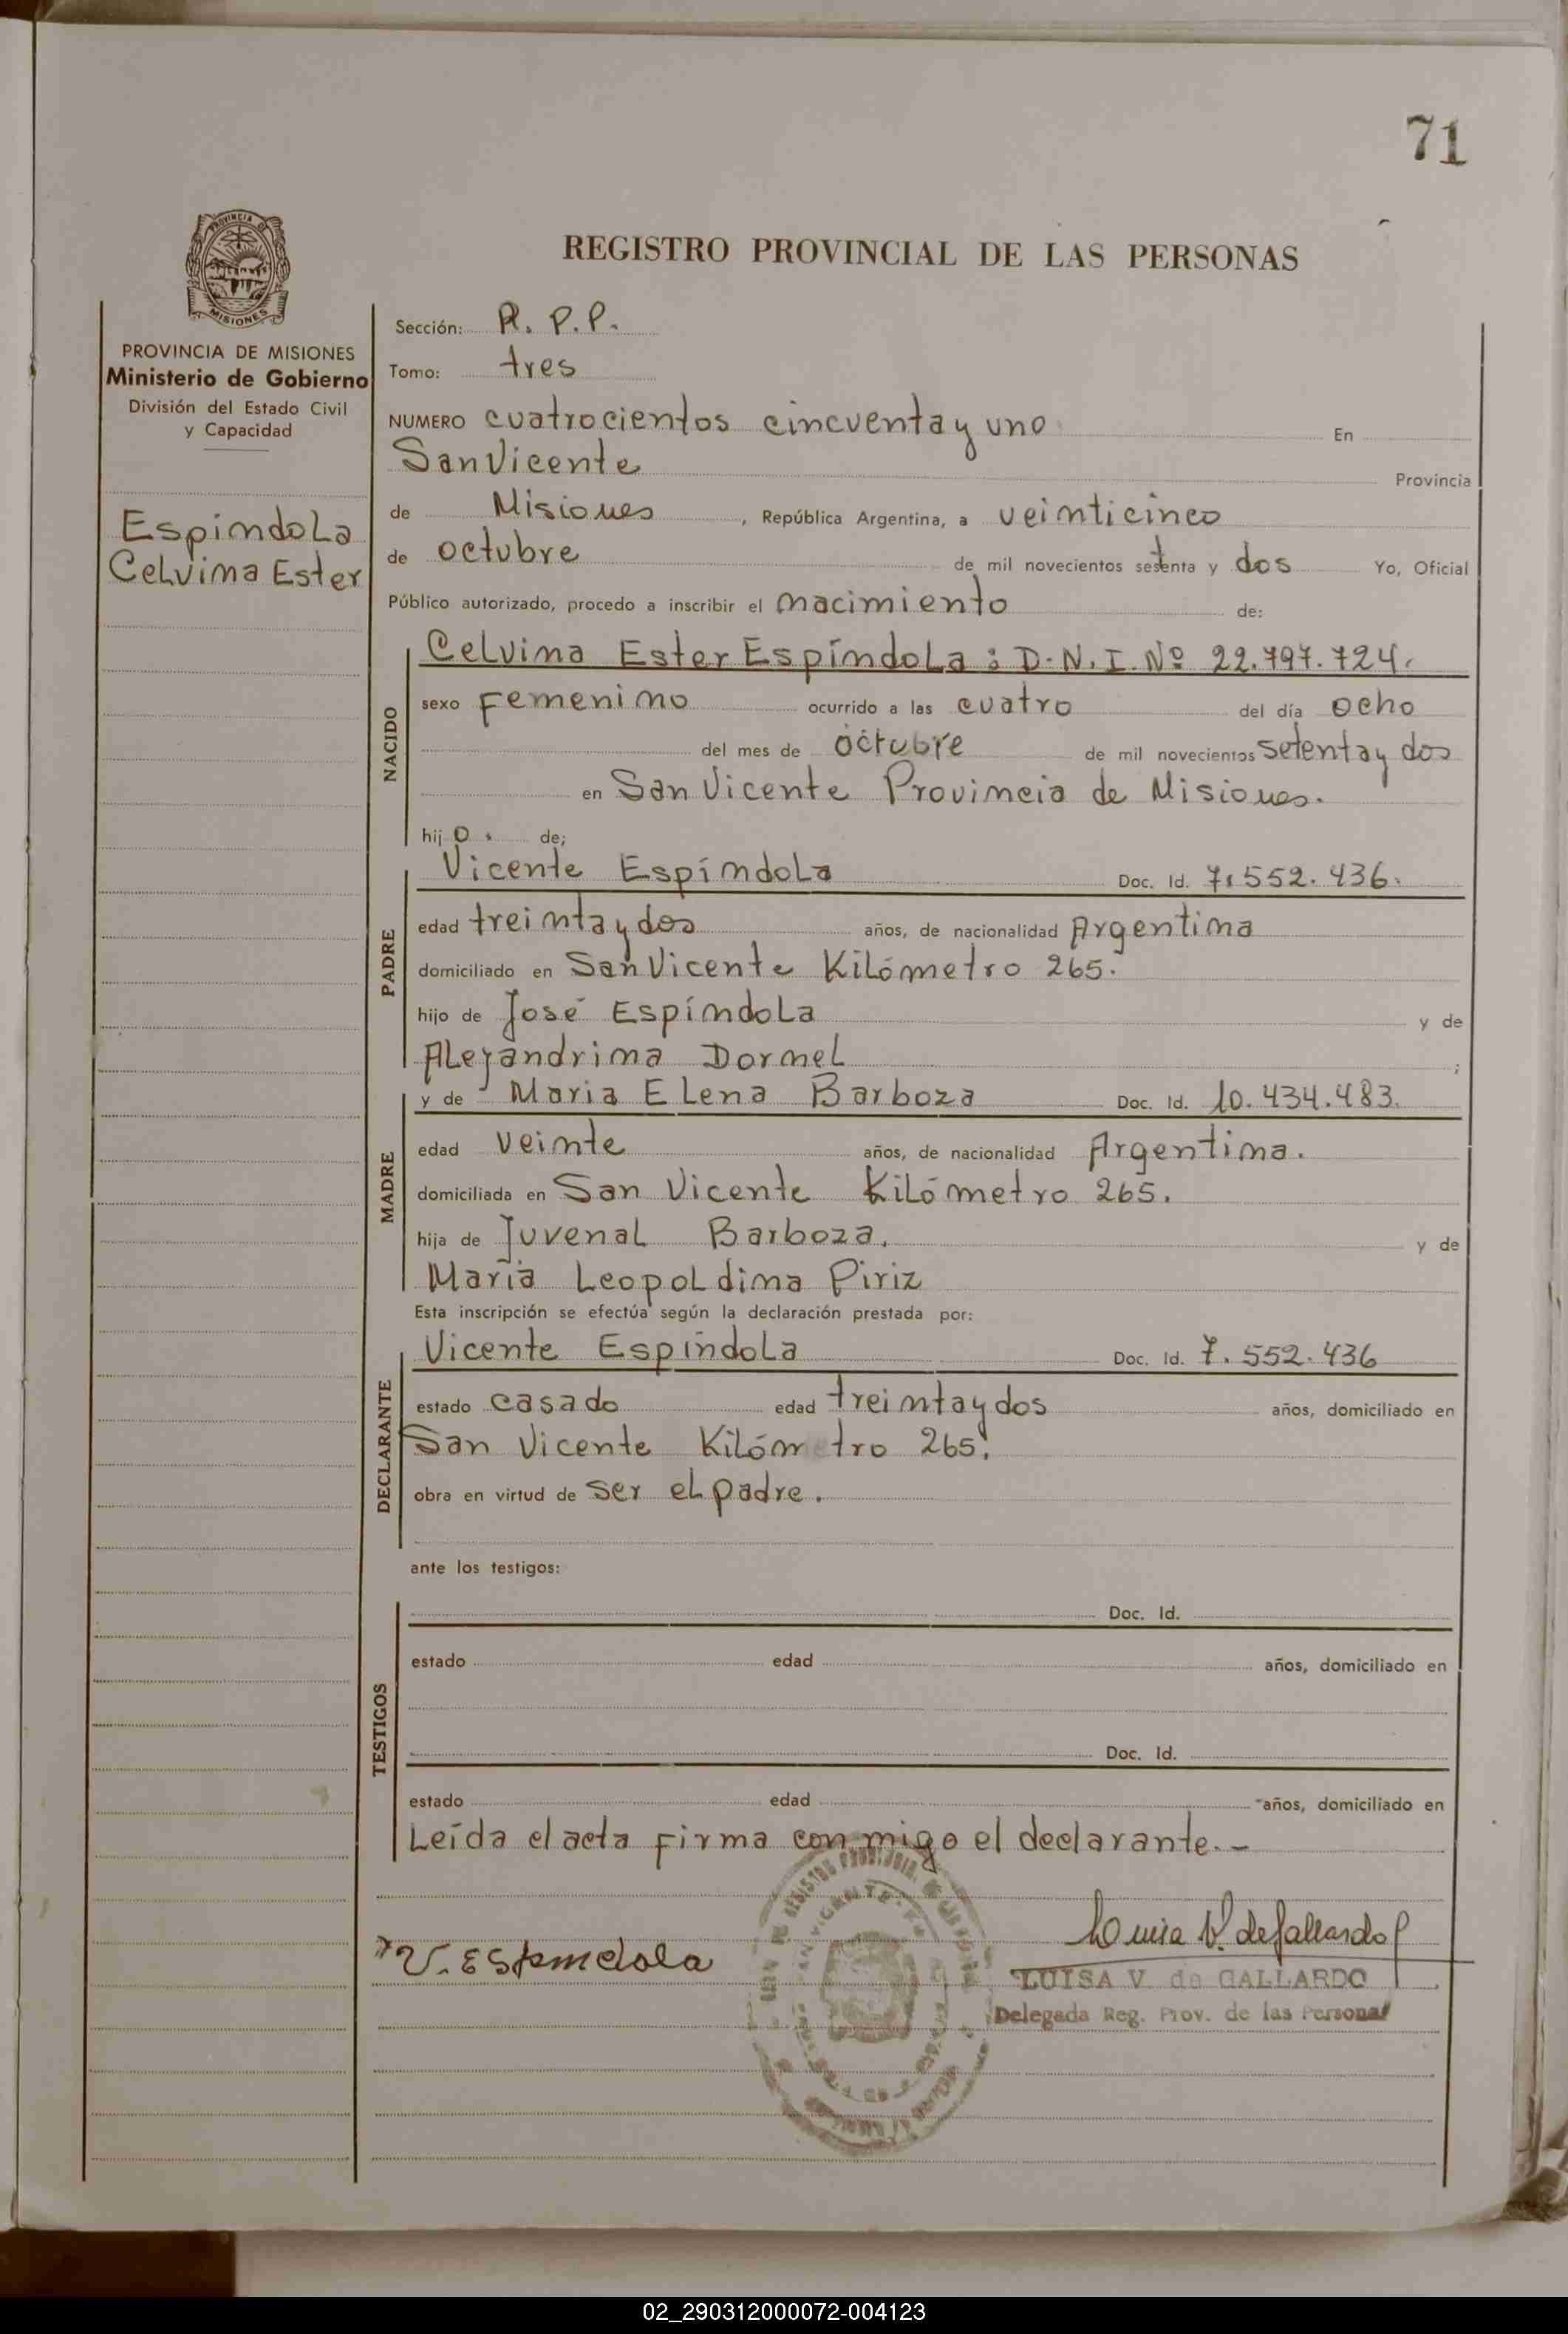 71
REGISTRO PROVINCIAL DE LAS PERSONAS
PROVINCIA DE MISIONES
Ministerio de Gobierno
División del Estado Civil
y Capacidad
Espindola
Celvina Ester
Sección: R. P. P.
Tomo: tres
NUMERO cuatrocientos cincuenta y uno En
San Vicente Provincia
de Misiones, República Argentina, a veinticinco
de octubre de mil novecientos setenta y dos Yo, Oficial
Público autorizado, procedo a inscribir el nacimiento de:
NACIDO
Celvina Ester Espíndola: D.N.I. Nº 22.797.724.
sexo femenino ocurrido a las cuatro del día ocho
del mes de octubre de mil novecientos setenta y dos
en San Vicente Provincia de Misiones.
hijo. de;
PADRE
Vicente Espíndola Doc. Id. 7.552.436.
edad treinta y dos años, de nacionalidad Argentina
domiciliado en San Vicente Kilómetro 265.
hijo de José Espíndola y de
Alejandrina Dornel ;
MADRE
y de Maria Elena Barboza Doc. Id. 10.434.483.
edad veinte años, de nacionalidad Argentina.
domiciliada en San Vicente Kilómetro 265.
hija de Juvenal Barboza. y de
María Leopoldina Piriz
Esta inscripción se efectúa según la declaración prestada por:
DECLARANTE
Vicente Espíndola Doc. Id. 7.552.436
estado casado edad treinta y dos años, domiciliado en
San Vicente Kilómetro 265.
obra en virtud de ser el padre.
ante los testigos:
TESTIGOS
Doc. Id.
estado edad años, domiciliado en
Doc. Id.
estado edad años, domiciliado en
Leída el acta firma conmigo el declarante.-
V. Espindola
Luisa V. de Gallardo
LUISA V. de GALLARDO
Delegada Reg. Prov. de las Personas
02_290312000072-004123